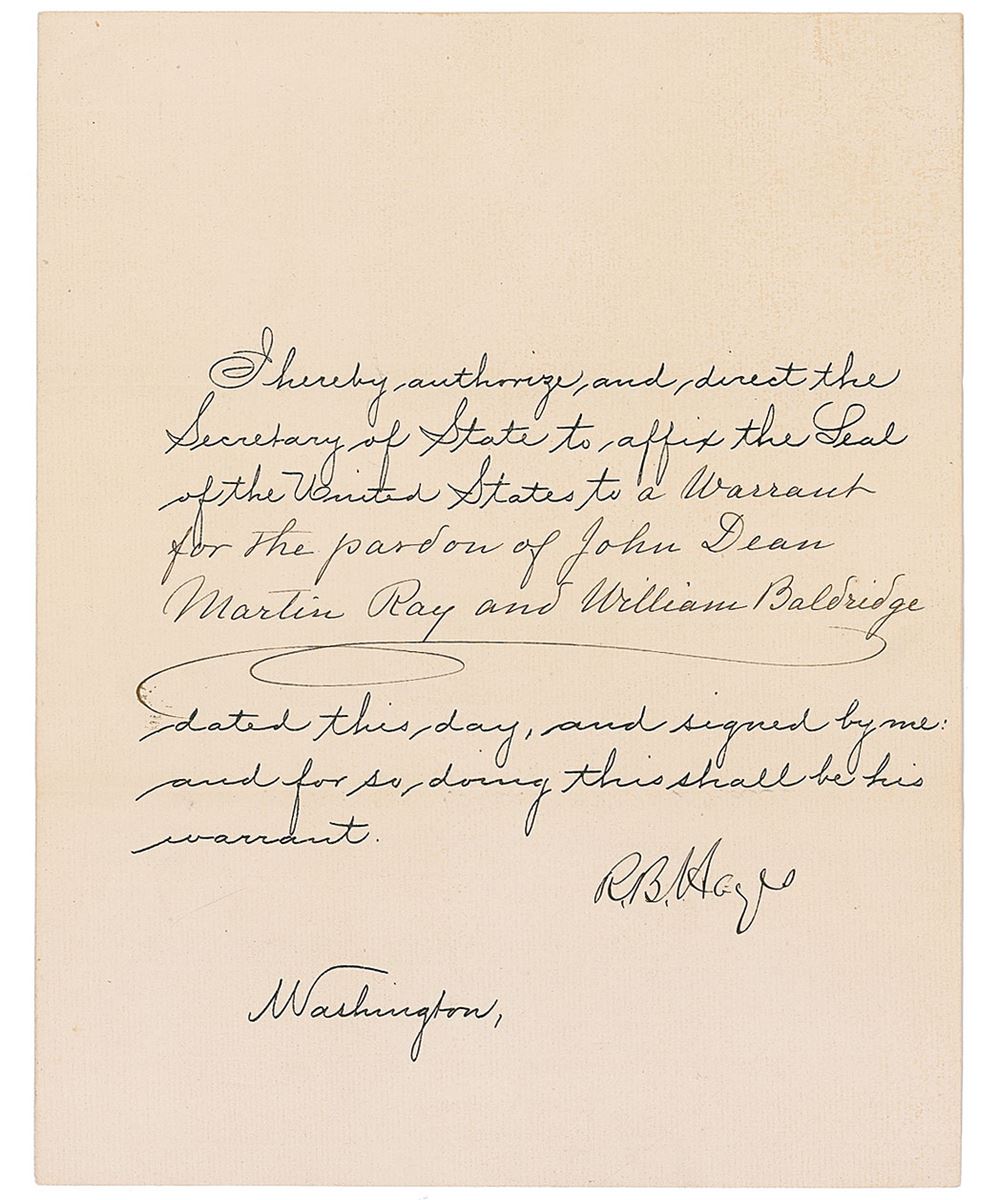 I hereby authorize and direct the
Secretary of State to affix the Seal
of the United States to a Warrant
for the pardon of John Dean
Martin Ray and William Baldridge
dated this day, and signed by me:
and for so doing this shall be his
warrant.
R.B. Hayes
Washington,